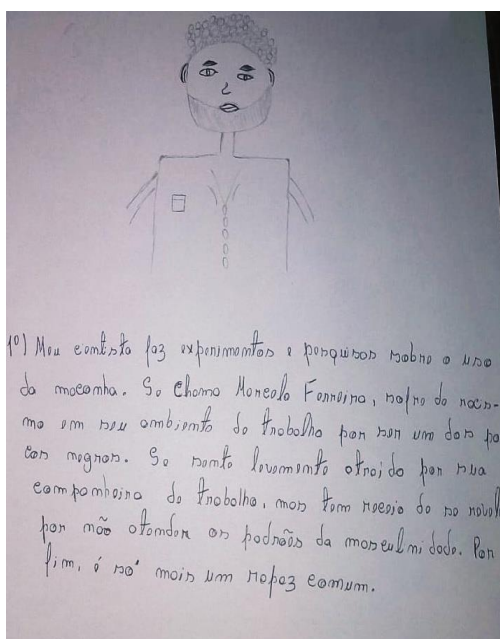 1º) Meu cientista faz experimentos e pesquisas sobre o uso
da maconha. Se chama Marcelo Ferreira, sofre de racis-
mo em seu ambiente de trabalho por ser um dos pou
cos negros. Se sente levemente atraido por sua
companheira de trabalho, mas tem receio de se revel
por não atender os padrões da masculinidade. Por
fim, é só mais um rapaz comum.